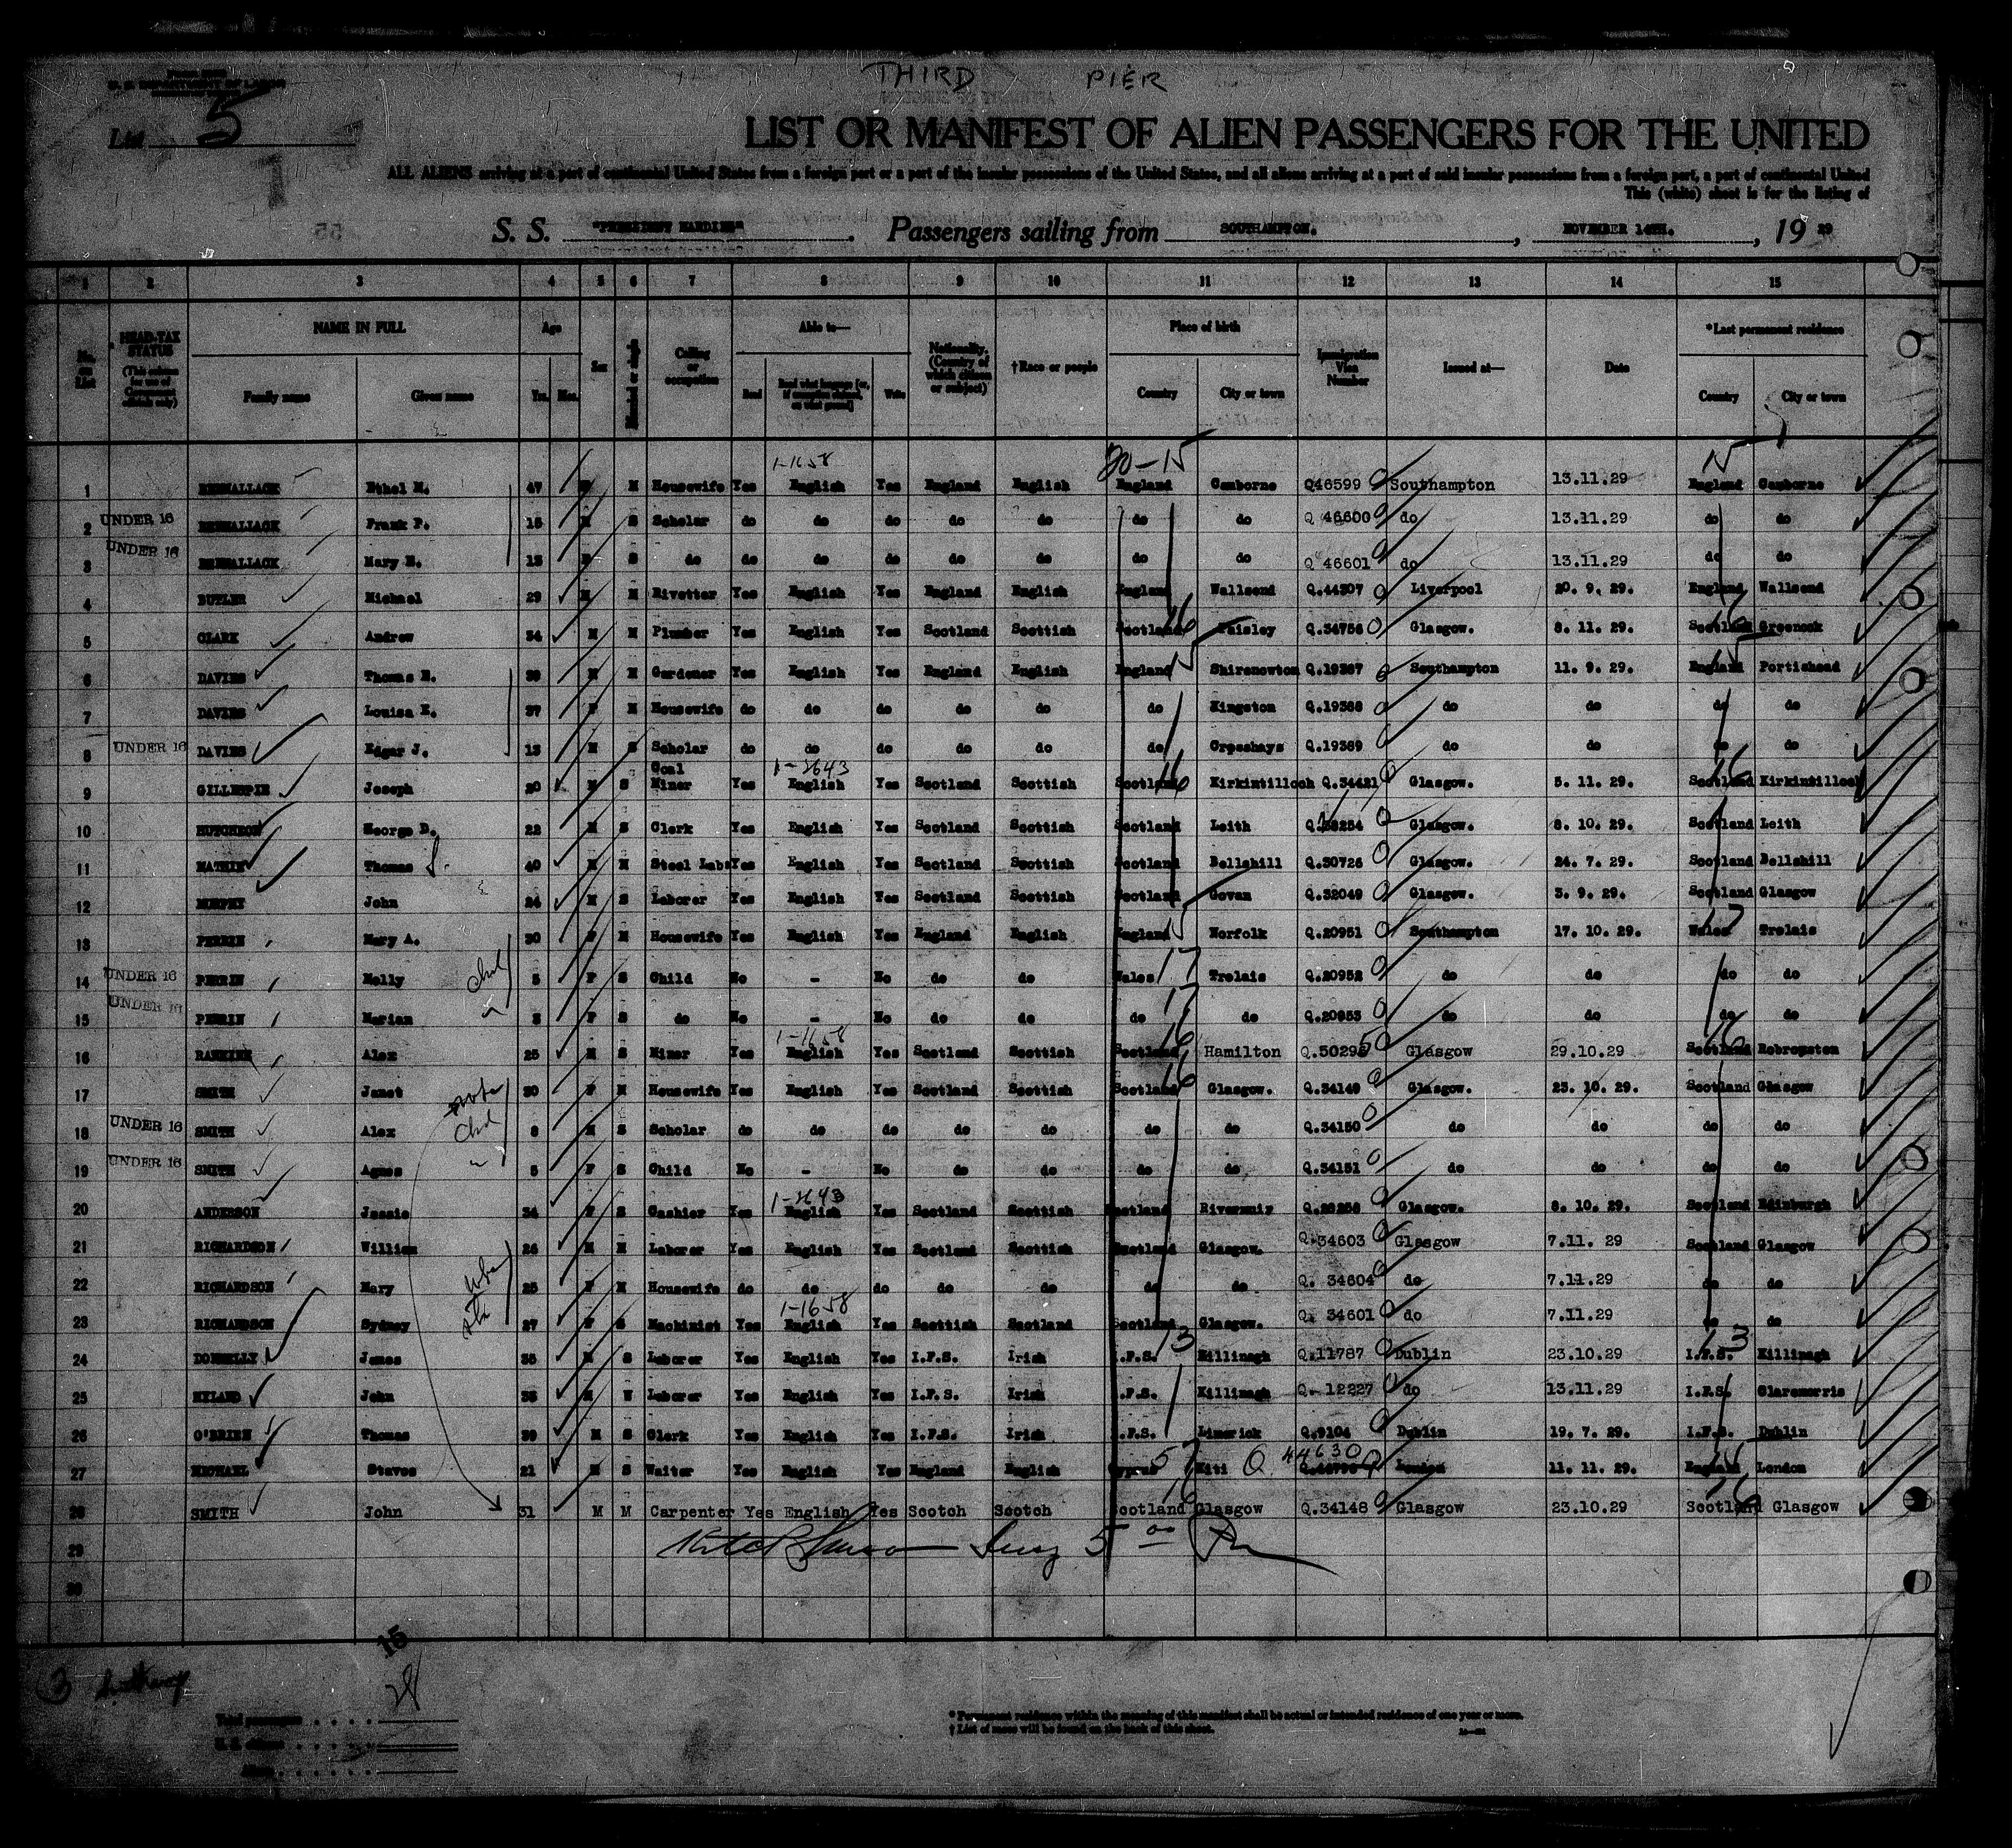 THIRD PIER
List 5
LIST OR MANIFEST OF ALIEN PASSENGERS FOR THE UNITED
ALL ALIENS arriving at a port of continental United States from a foreign port or a port of the insular possessions of the United States, and all aliens arriving at a port of said insular possessions from a foreign port, a port of continental United
This (white) sheet is for the listing of
S. S. "PRESIDENT HARDING" Passengers sailing from SOUTHAMPTON. , NOVEMBER 14TH. , 19 29
1 2 3 4 5 6 7 8 9 10 11 12 13 14 15
No. on List HEAD-TAX STATUS (This column for use of Government officials only) NAME IN FULL Family name Given name Age Yrs. Mos. Sex Married or single Calling or occupation Able to— Read Read what language [or, if exemption claimed, on what ground] Write Nationality. (Country of which citizen or subject) †Race or people Place of birth Country City or town Immigration Visa Number Issued at— Date *Last permanent residence Country City or town
1-1658 20-15 15
1 Ethel M. 47 M Housewife Yes English Yes England English England Camborne Q46599 Southampton 13.11.29 England Camborne
2 UNDER 16 Frank P. M S Scholar do do do do do do do Q 46600 do 13.11.29 do do
3 UNDER 16 Mary 13 F S do do do do do do do do Q 46601 do 13.11.29 do do
4 BUTLER Michael 29 M M Rivetter Yes English Yes England English England Wallsend Q.44307 Liverpool 20. 9. 29. England Wallsend
5 CLARK Andrew 34 M M Plumber Yes English Yes Scotland Scottish Scotland 16 Paisley Q.34756 Glasgow. 8. 11. 29. Scotland Greenock
6 DAVIES Thomas H. 39 M M Gardener Yes English Yes England English England 15 Shirenewton Q.19367 Southampton 11. 9. 29. England 15 Portishead
7 DAVIES Louisa E. 37 F M Housewife do do do do do do Kingston Q.19368 do do do do
8 UNDER 16 DAVIES Edgar J. 13 M S Scholar do do do do do do Q.19369 do do do do
1-2643
9 GILLESPIE Joseph 20 M S Coal Miner Yes English Yes Scotland Scottish Scotland 16 Kirkintilloch Q.34421 Glasgow. 5. 11. 29. Scotland 16 Kirkintilloch
10 HUTCHEON George D. 22 M S Clerk Yes English Yes Scotland Scottish Scotland Leith Glasgow. 8. 10. 29. Scotland Leith
11 Thomas 40 M M Steel Lab Yes English Yes Scotland Scottish Scotland Bellshill Q.30726 Glasgow. 24. 7. 29. Scotland Bellshill
12 MURPHY John 24 M S Laborer Yes English Yes Scotland Scottish Scotland Govan Q.32049 Glasgow. 3. 9. 29. Scotland Glasgow
13 PERRIN Mary A. 30 F M Housewife Yes English Yes England English England 15 Norfolk Q.20951 Southampton 17. 10. 29. Wales 17 Trelais
14 UNDER 16 PERRIN Molly 5 F S Child No - No do do Wales 17 Trelais Q.20952 do do do do
15 UNDER 16 PERRIN Marian 3 F S do No - No do do do 17 do Q.20953 do do do do
1-1658
16 Alex 25 M S Miner Yes English Yes Scotland Scottish Scotland 16 Hamilton Q.50295 Glasgow 29.10.29 Scotland 16
17 SMITH Janet 30 F M Housewife Yes English Yes Scotland Scottish Scotland 16 Glasgow. Q.34149 Glasgow. 23. 10. 29. Scotland Glasgow
18 UNDER 16 SMITH Alex 8 M S Scholar do do do do do do do Q.34150 do do do do
19 UNDER 16 SMITH Agnes 5 F S Child No - No do do do do Q.34151 do do do do
1-2643
20 ANDERSON Jessie 34 F S Cashier Yes English Yes Scotland Scottish Scotland Glasgow. 8. 10. 29. Scotland Edinburgh
21 RICHARDSON William 26 M M Laborer Yes English Yes Scotland Scottish Scotland Glasgow. Q.34603 Glasgow 7.11. 29 Scotland Glasgow
22 RICHARDSON Mary 25 F M Housewife do do do do do do do Q. 34604 do 7.11.29 do do
1-1658
23 RICHARDSON Sydney 27 S Machinist Yes English Yes Scottish Scotland Scotland Glasgow. Q. 34601 do 7.11.29 do do
24 DONNELLY James 35 M S Laborer Yes English Yes I.F.S. Irish I.F.S. 13 Killinagh Q.11787 Dublin 23.10.29 I.F.S. 13 Killinagh
25 HYLAND John M Laborer Yes English Yes I.F.S. Irish I.F.S. Killinagh Q. 12227 do 13.11.29 I.F.S. Claremorris
26 O'BRIEN Thomas 39 M S Clerk Yes English Yes I.F.S. Irish I.F.S. Limerick Q.9104 Dublin 19. 7. 29. I.F.S. Dublin
27 MICHAEL Stavos 21 M S Waiter Yes English Yes England English Cyprus 57 Kiti Q 44630 London 11. 11. 29. England London
28 SMITH John 31 M M Carpenter Yes English Yes Scotch Scotch Scotland 16 Glasgow Q.34148 Glasgow 23.10.29 Scotland 16 Glasgow
29
30
15
28
Total passengers
U. S. citizens
Aliens
* Permanent residence within the meaning of this manifest shall be actual or intended residence of one year or more.
† List of races will be found on the back of this sheet.